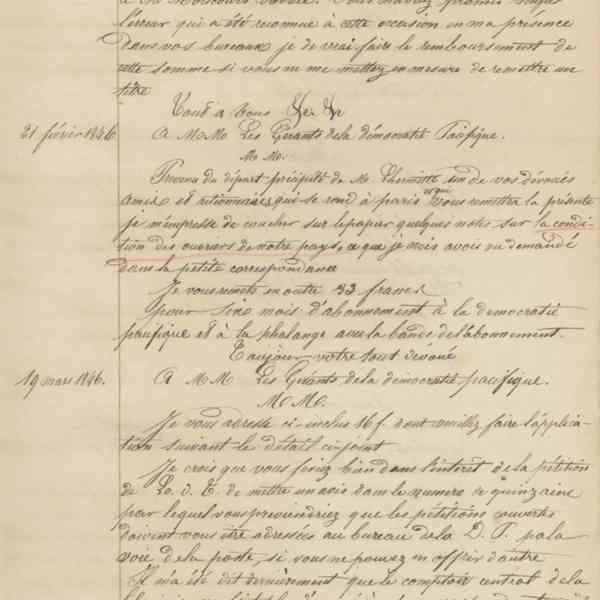 l'erreur qui a été reconnue à cette occasion en ma présence
dans vos bureaux je devrai faire le remboursement de
cette somme si vous ne me mettez en mesure de remettre un
titre
Tout a vous
21 février 1846 A M.M. Les Gérants de la démocratie Pacifique.
M M.
Prevenu du départ précipité de M. Lhermitte un de vos dévoués
amis et actionnaires, qui se rend à paris et qui vous remettra la présente
je m'empresse de coucher sur le papier quelques notes sur la condi-
tion des ouvriers de notre pays, ce que je crois avoir vu demandé
dans la petite correspondance
Je vous remets en outre 33 francs
pour six mois d'abonnement à la democratie
pacifique et à la phalange avec la bande de l'abonnement.
Toujours votre tout dévoué
19 mars 1846. A M M Les Gérants de la démocratie pacifique.
M M.
Je vous adresse ci-inclus 16 f dont veuillez faire l'applica-
tion suivant le détail cijoint
Je crois que vous feriez bien dans l'intérêt de la pétition
de L'O. d. T. de mettre un avis dans le numero de quinzaine
par lequel vous previendriez que les pétitions couvertes
doivent vous être adressées au bureau de la D. P. par la
voie de la poste, si vous ne pouvez en offrir d'autre
Il m'a été dit dernièrement que le comptoir central de la